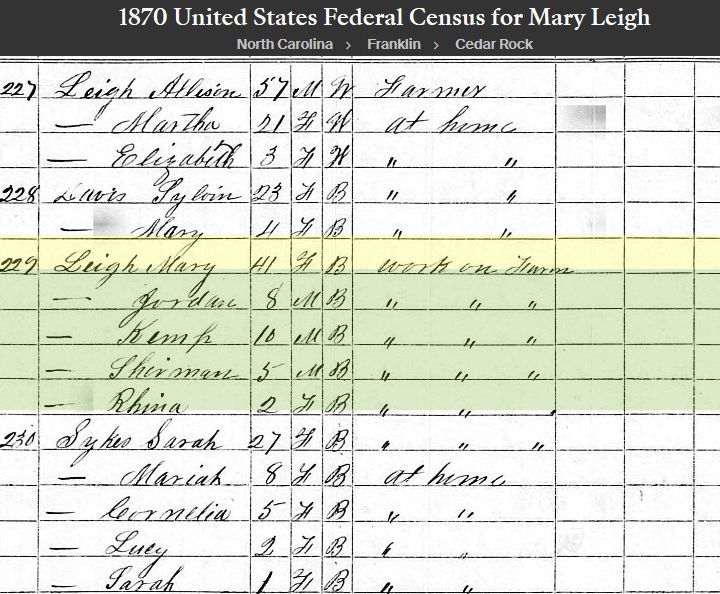 1870 United States Federal Census for Mary Leigh
North Carolina > Franklin > Cedar Rock
227 Leigh Allison 57 M W Farmer
— Martha 21 F W at home
— Elizabeth 3 F W " "
228 Davis Sylvin 23 F B " "
— Mary 4 F B " "
229 Leigh Mary 41 F B work on Farm
— Jordan 8 M B " " "
— Kemp 10 M B " " "
— Sherman 5 M B " " "
— Rhina 2 F B " " "
230 Sykes Sarah 27 F B " " "
— Mariah 8 F B at home
— Cornelia 5 F B " "
— Lucy 2 F B " "
— Sarah 1 F B " "